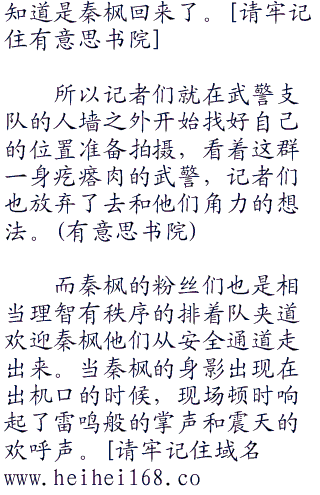 知道是秦枫回来了。[请牢记
住有意思书院]
所以记者们就在武警支
队的人墙之外开始找好自己
的位置准备拍摄，看着这群
一身疙瘩肉的武警，记者们
也放弃了去和他们角力的想
法。(有意思书院)
而秦枫的粉丝们也是相
当理智有秩序的排着队夹道
欢迎秦枫他们从安全通道走
出来。当秦枫的身影出现在
出机口的时候，现场顿时响
起了雷鸣般的掌声和震天的
欢呼声。[请牢记住域名
www.heihei168.co